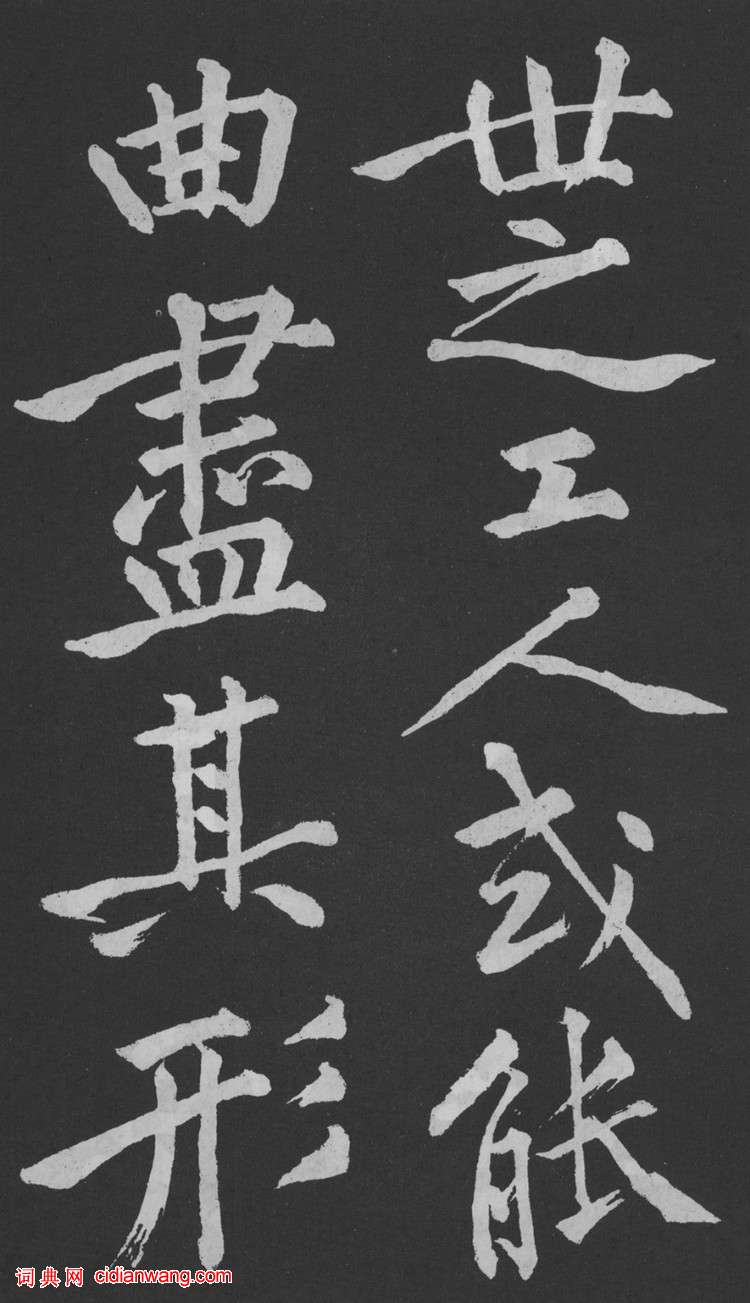 世之工人或能
曲盡其形
词典网 cidianwang.com